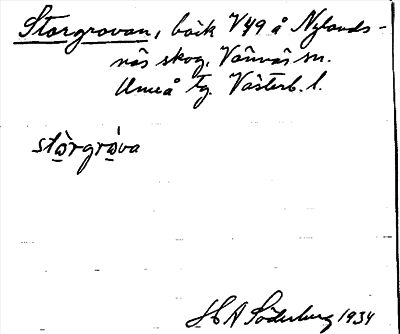 Storgrovan, bäck V49 å Nylands-
näs skog, Vännäs sn.
Umeå tg. Västerb. l.
stọ̀rgrọ́va
H A Söderberg 1934